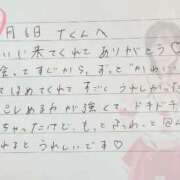 月6日 Tくんへ
来てくれて ありがとう♡
会ってすぐから、ずっと"かわいい
てほめてくれて すごく うれしかった
だきしめる力が強くて、ドキドキ
ちゃったけど、もっと
れると うれしいです♡